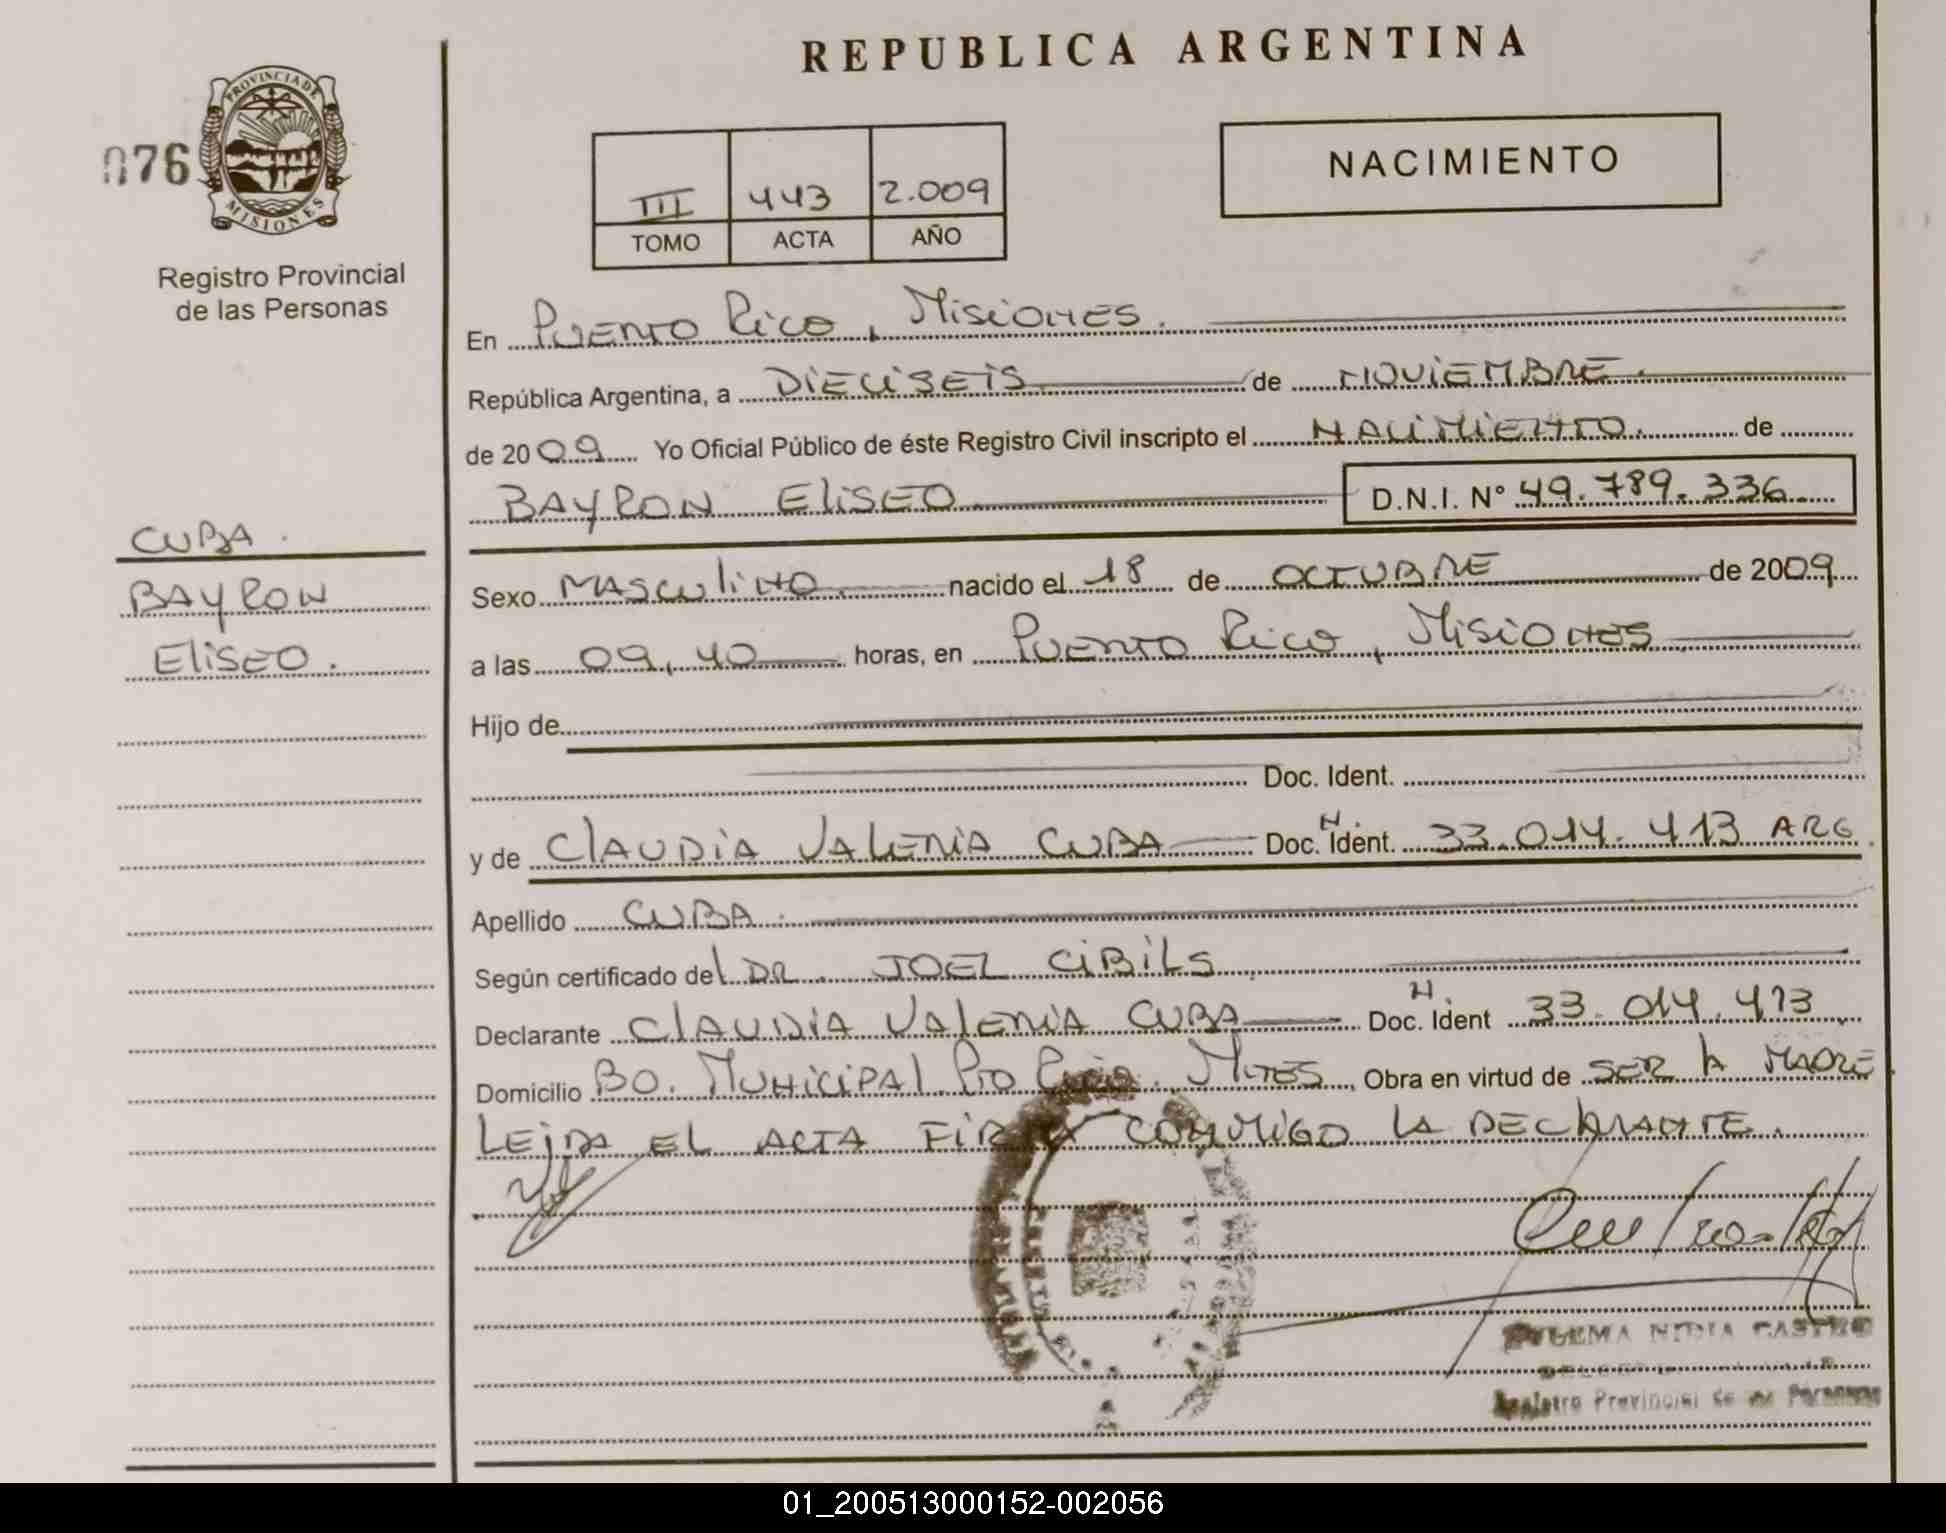 REPUBLICA ARGENTINA
PROVINCIA DE
MISIONES
076
Registro Provincial
de las Personas
NACIMIENTO
III 443 2.009
TOMO ACTA AÑO
En Puerto Rico, Misiones.
República Argentina, a DiECiSEiS de NOViEMBRE.
de 2009 Yo Oficial Público de éste Registro Civil inscripto el NACiMiENTO. de
BAYRON EliSEO D.N.I. Nº 49.789.336
CUBA.
BAYRON
EliSEO.
Sexo MASCUliNO nacido el 18 de OCTUBRE de 2009
a las 09,40 horas, en Puerto Rico, Misiones
Hijo de
Doc. Ident.
y de ClAUDiA VALERiA CUBA Doc. N. Ident. 33.014.413 ARG.
Apellido CUBA.
Según certificado del DR. JOEL CiBiLS
Declarante ClAUDiA VAleRiA CUBA Doc. N. Ident 33.014.413
Domicilio BO. MUNiCiPAl Pto Rico. Mnes, Obra en virtud de SER lA MADRE
LEiDA EL ACTA FiRMA CONMiGO LA DEClARANTE.
NIDIA CASTRO
Registro Provincial de las Personas
01_200513000152-002056